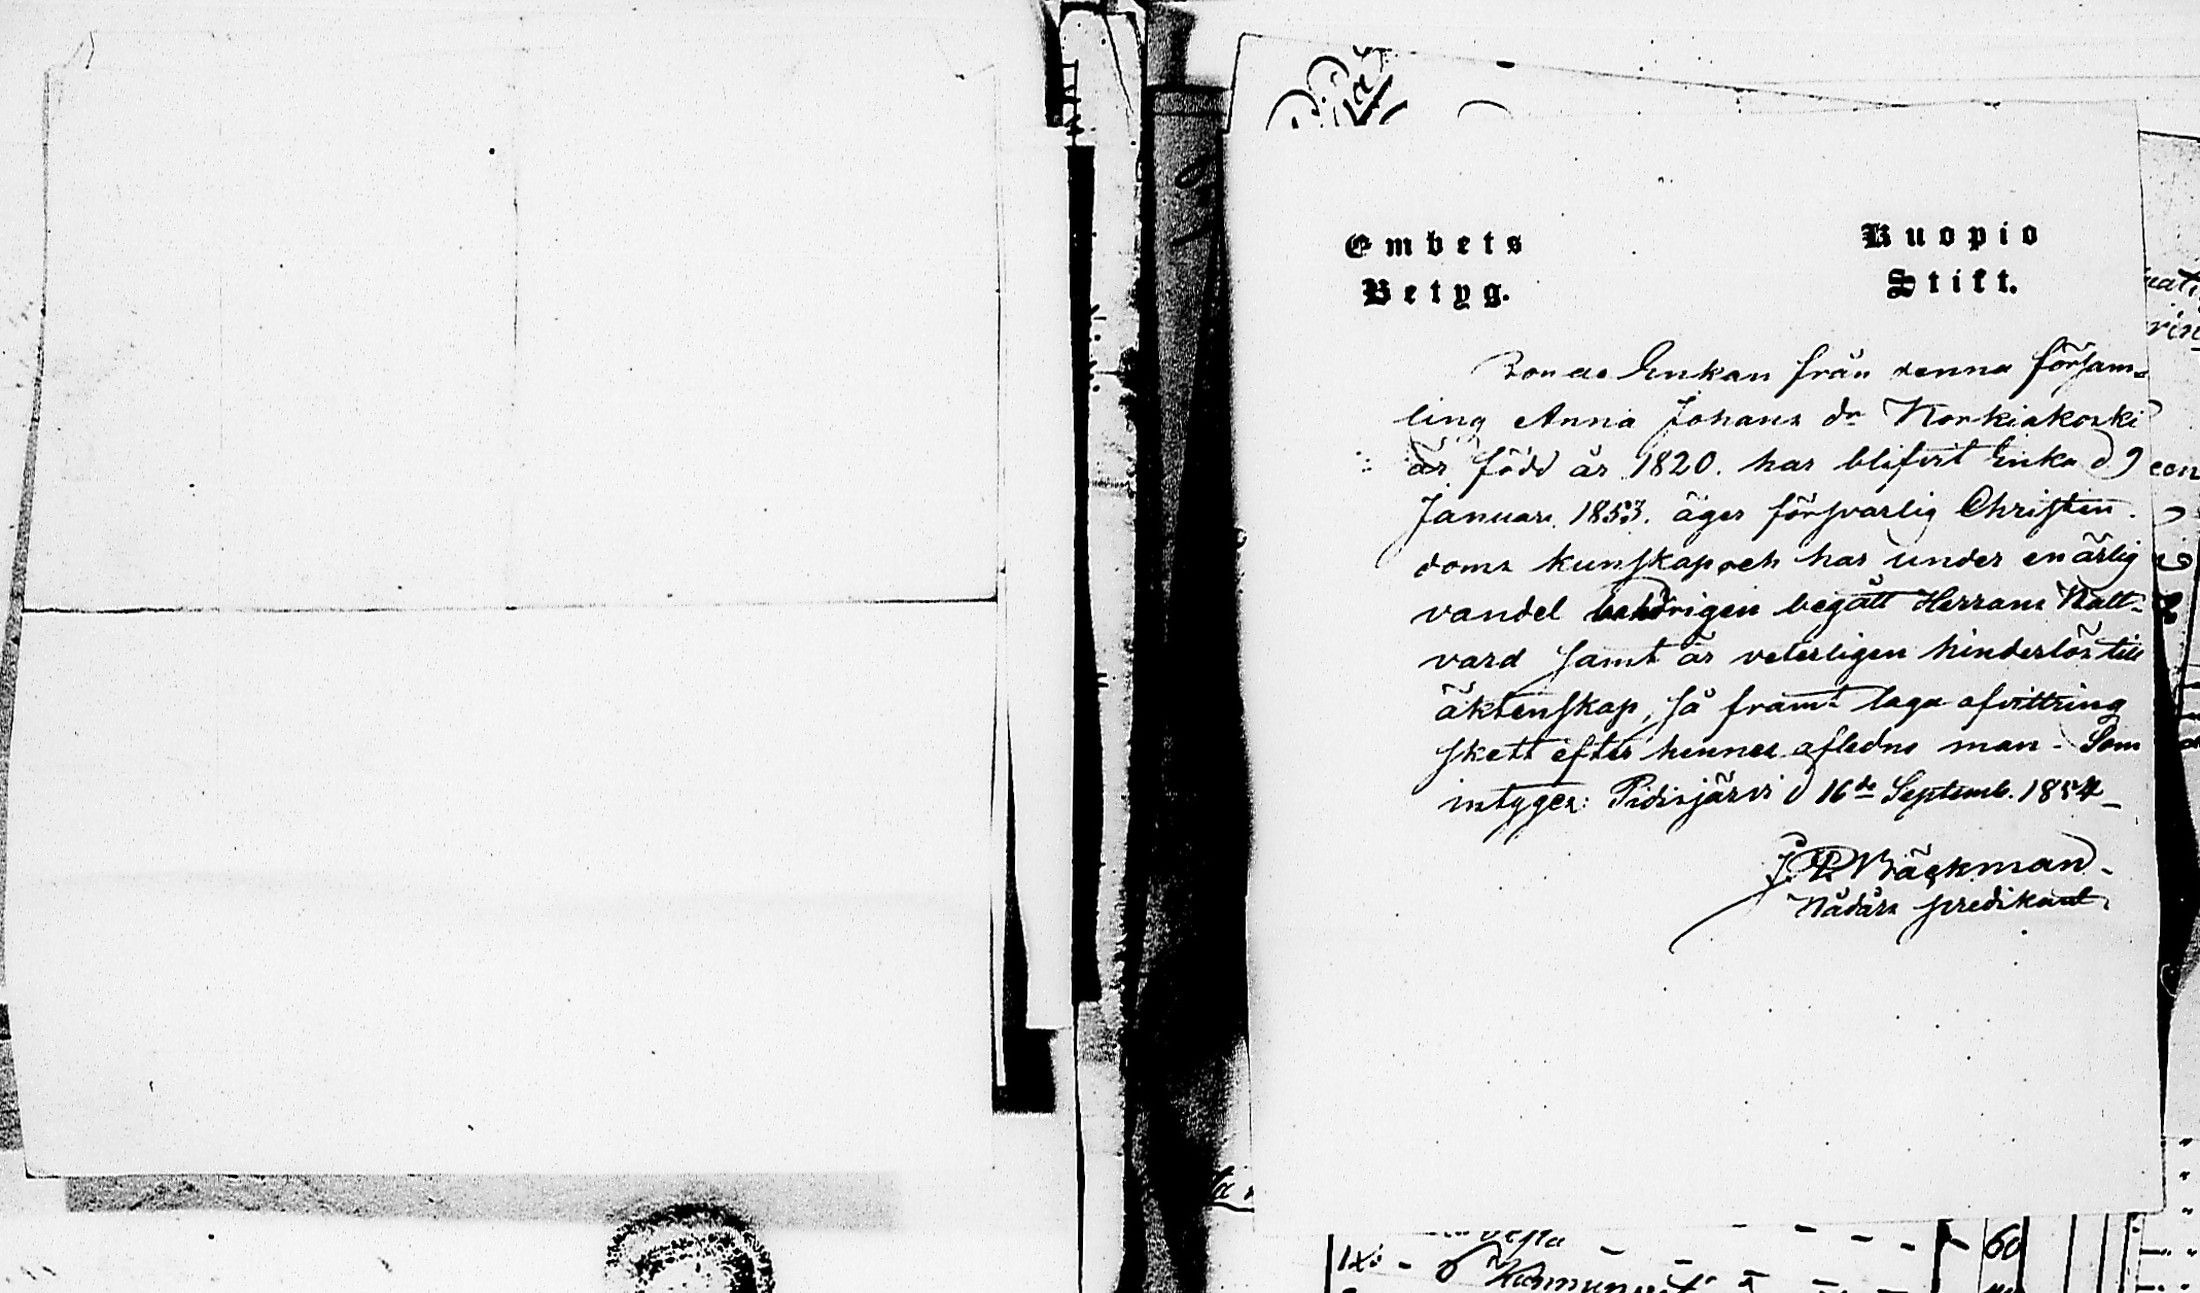 Embets
Betyg.
Kuopio
Stift.
Bonde Enkan från denna försam-
ling Anna Johans dr Korkiakoski
är född år 1820. har blifvit Enka d 9
Januari 1853. äger försvarlig Christen-
doms kunskap och har under en ärlig
vandel behörigen begått Herrans Natt-
vard samt är veterligen hinderlös till
äktenskap, så framt laga afvittring
skett efter hennes aflidne man. Som
intyger: Pidisjärvi d 16de Septemb. 1854
J. P. Bäckman.
Nådårs predikant.
60